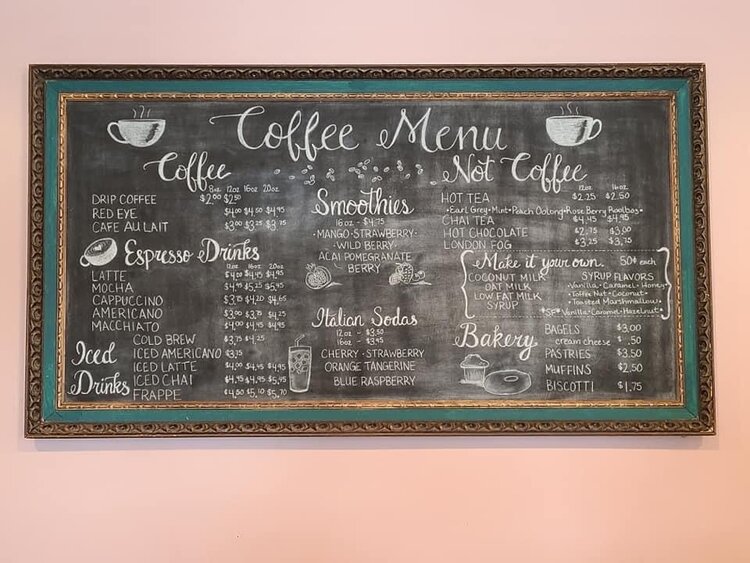 Coffee Menu
Coffee
8oz 12oz 16oz 20oz
DRIP COFFEE $2.00 $2.50
RED EYE $4.00 $4.50 $4.95
CAFE AU LAIT $3.00 $3.25 $3.75
Espresso Drinks
12oz 16oz 20oz
LATTE $4.00 $4.45 $4.95
MOCHA $4.95 $5.25 $5.95
CAPPUCCINO $3.75 $4.20 $4.65
AMERICANO $3.00 $3.75 $4.25
MACCHIATO $4.00 $4.45 $4.95
Iced Drinks
COLD BREW $3.75 $4.25
ICED AMERICANO $3.75
ICED LATTE $4.00 $4.45 $4.95
ICED CHAI $4.95 $5.95
FRAPPE $4.50 $5.10 $5.70
Smoothies
16oz - $4.75
MANGO·STRAWBERRY·
·WILD BERRY·
ACAI POMEGRANATE
BERRY
Italian Sodas
12oz - $3.50
16oz - $3.95
CHERRY·STRAWBERRY
ORANGE TANGERINE
BLUE RASPBERRY
Not Coffee
12oz 16oz
HOT TEA $2.25 $2.50
·Earl Grey·Mint·Peach Oolong·Rose Berry Rooibos·
CHAI TEA $4.45 $4.95
HOT CHOCOLATE $2.75 $3.00
LONDON FOG $3.25 $3.75
Make it your own 50¢ each
COCONUT MILK
OAT MILK
LOW FAT MILK
SYRUP
SYRUP FLAVORS
·Vanilla·Caramel·Honey
·Toffee Nut·Coconut·
·Toasted Marshmallow·
*SF* Vanilla·Caramel·Hazelnut·
Bakery
BAGELS $3.00
cream cheese $.50
PASTRIES $3.50
MUFFINS $2.50
BISCOTTI $1.75